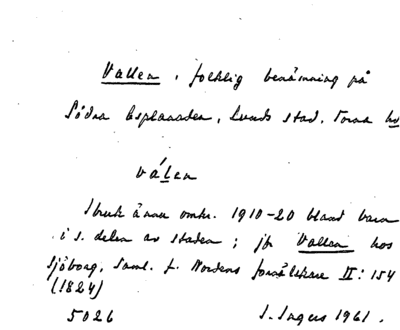 Vallen, folklig benämning på
Södra Esplanaden, Lunds stad, Torna hd
válen
I bruk ännu omkr. 1910-20 bland barn
i s. delen av staden; jfr Vallen hos
Sjöborg, Saml. f. Nordens fornälskare II: 154
(1824)
5026 I. Ingers 1961.